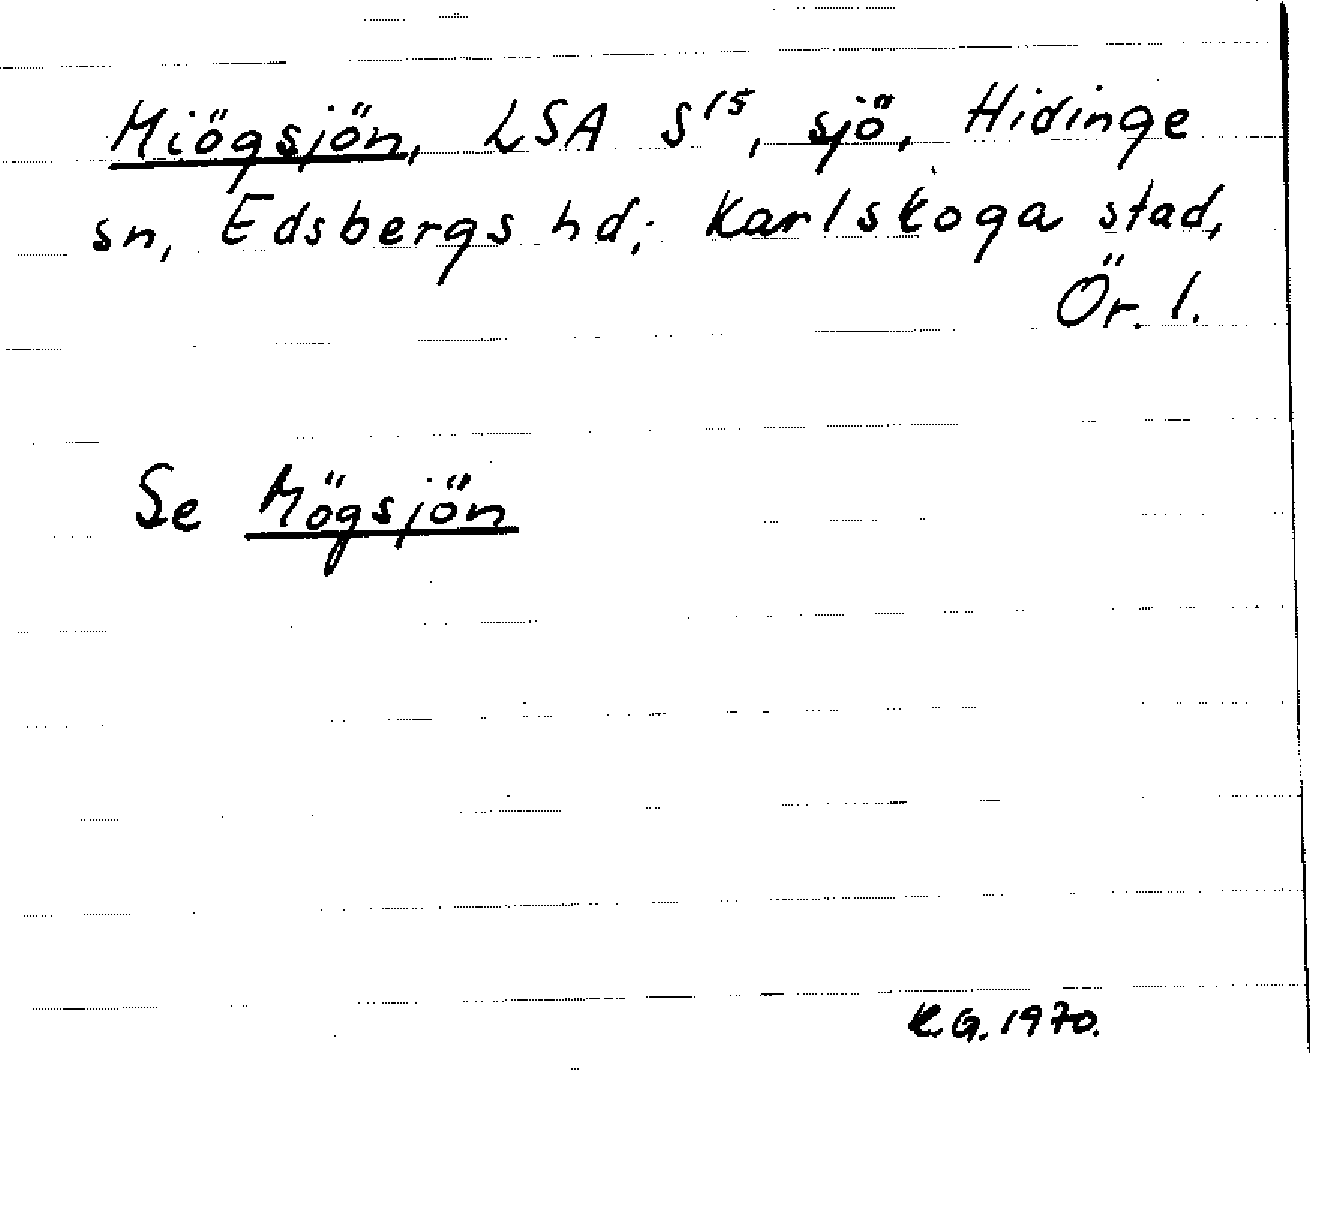 Miögsjön, LSA S¹⁵, sjö, Hidinge
sn, Edsbergs hd; Karlskoga stad,
Ör. l.
Se Mögsjön
K.G. 1970.